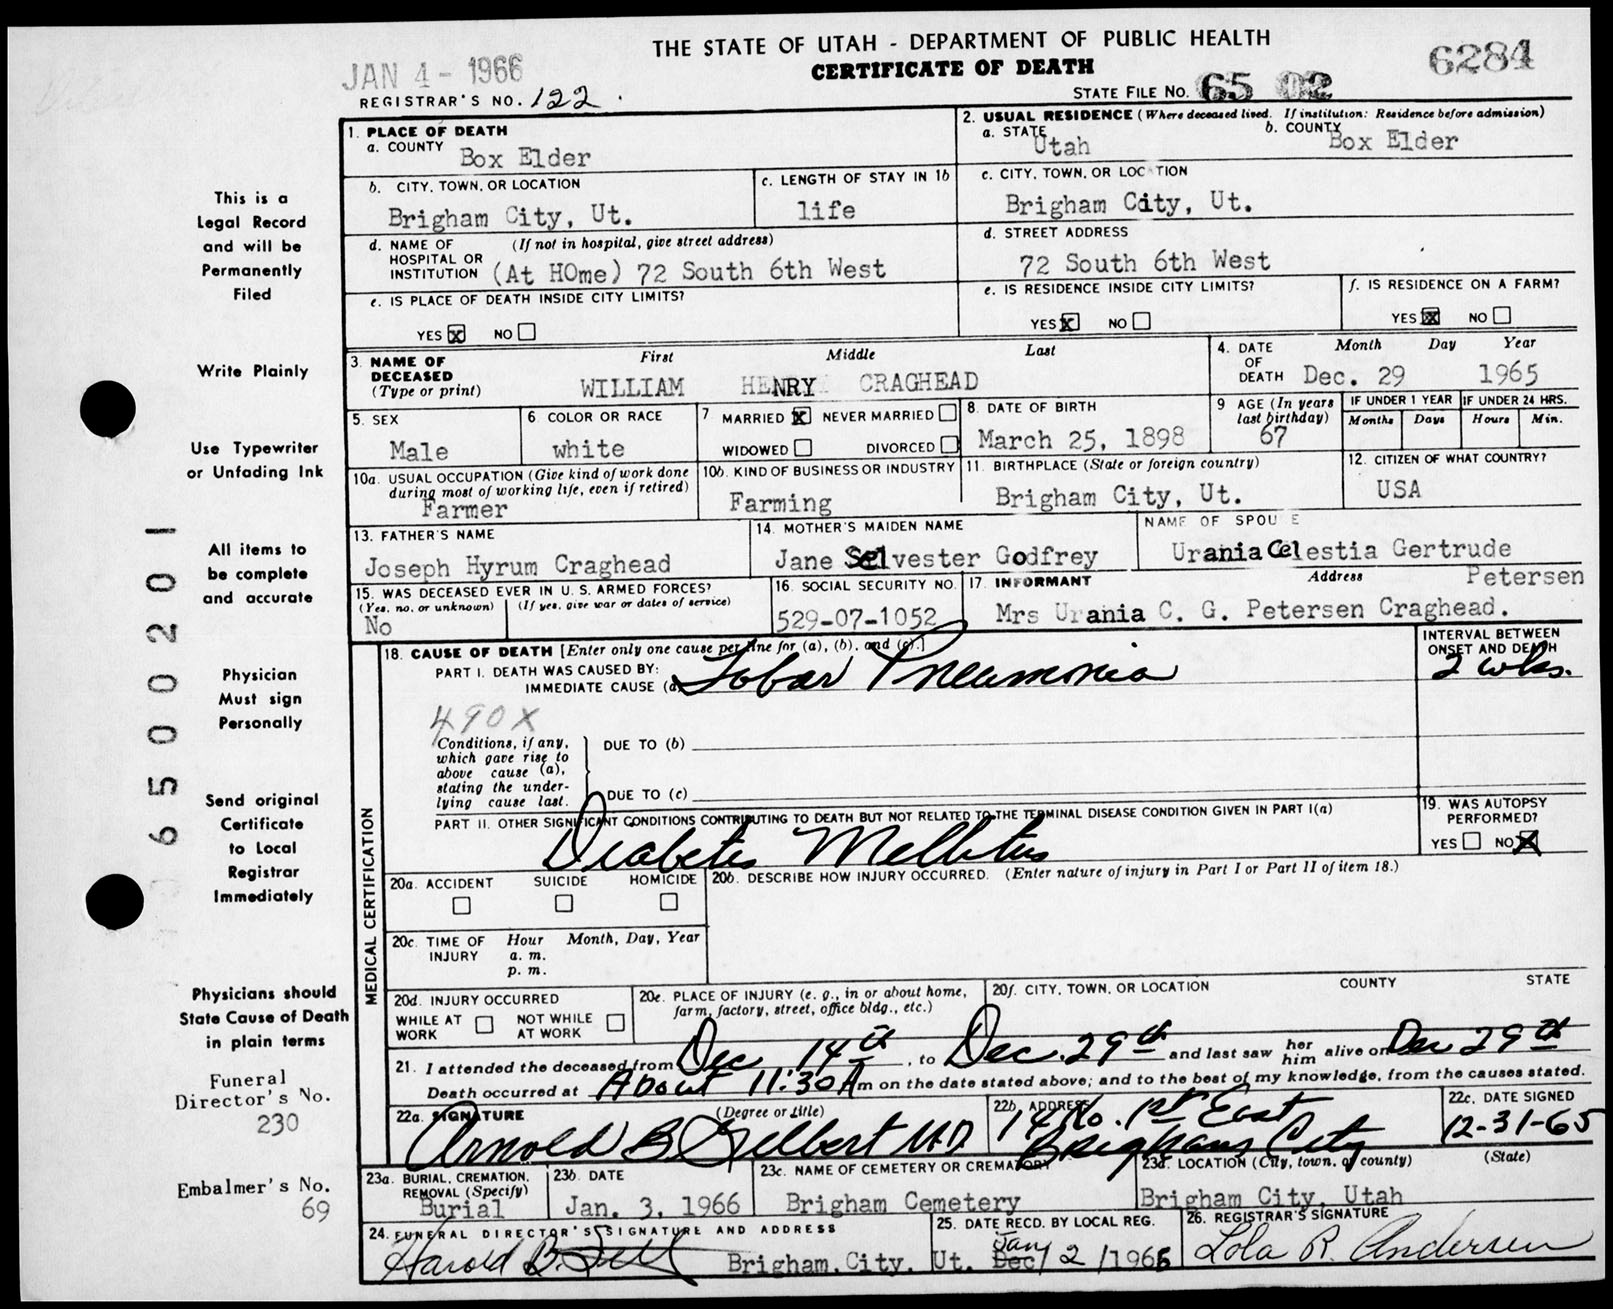 THE STATE OF UTAH - DEPARTMENT OF PUBLIC HEALTH
CERTIFICATE OF DEATH
JAN 4 - 1966
6284
REGISTRAR'S NO. 122
STATE FILE NO. 65 02
This is a
Legal Record
and will be
Permanently
Filed
Write Plainly
Use Typewriter
or Unfading Ink
All items to
be complete
and accurate
Physician
Must sign
Personally
Send original
Certificate
to Local
Registrar
Immediately
Physicians should
State Cause of Death
in plain terms
Funeral
Director's No.
230
Embalmer's No.
69
6500201
1. PLACE OF DEATH
a. COUNTY Box Elder
2. USUAL RESIDENCE (Where deceased lived. If institution: Residence before admission)
a. STATE Utah b. COUNTY Box Elder
b. CITY, TOWN, OR LOCATION
Brigham City, Ut.
c. LENGTH OF STAY IN 1b
life
c. CITY, TOWN, OR LOC TION
Brigham City, Ut.
d. NAME OF HOSPITAL OR INSTITUTION (If not in hospital, give street address)
(At HOme) 72 South 6th West
d. STREET ADDRESS
72 South 6th West
e. IS PLACE OF DEATH INSIDE CITY LIMITS?
YES X NO
e. IS RESIDENCE INSIDE CITY LIMITS?
YES X NO
f. IS RESIDENCE ON A FARM?
YES X NO
3. NAME OF DECEASED (Type or print)
First Middle Last
WILLIAM HENRY CRAGHEAD
4. DATE OF DEATH Month Day Year
Dec. 29 1965
5. SEX
Male
6 COLOR OR RACE
white
7 MARRIED X NEVER MARRIED
WIDOWED DIVORCED
8. DATE OF BIRTH
March 25, 1898
9 AGE (In years last birthday)
67
IF UNDER 1 YEAR
Months Days
IF UNDER 24 HRS.
Hours Min.
10a. USUAL OCCUPATION (Give kind of work done during most of working life, even if retired)
Farmer
10b. KIND OF BUSINESS OR INDUSTRY
Farming
11. BIRTHPLACE (State or foreign country)
Brigham City, Ut.
12. CITIZEN OF WHAT COUNTRY?
USA
13. FATHER'S NAME
Joseph Hyrum Craghead
14. MOTHER'S MAIDEN NAME
Jane Selvester Godfrey
NAME OF SPOU E
Urania Celestia Gertrude
Petersen
15. WAS DECEASED EVER IN U. S. ARMED FORCES?
(Yes, no, or unknown) (If yes, give war or dates of service)
No
16. SOCIAL SECURITY NO.
529-07-1052
17. INFORMANT Address
Mrs Urania C. G. Petersen Craghead.
MEDICAL CERTIFICATION
18. CAUSE OF DEATH [Enter only one cause per line for (a), (b), and (c).]
PART I. DEATH WAS CAUSED BY:
IMMEDIATE CAUSE (a) Lobar Pneumonia
INTERVAL BETWEEN ONSET AND DEATH
2 wks.
490X
Conditions, if any, which gave rise to above cause (a), stating the underlying cause last.
DUE TO (b)
DUE TO (c)
PART II. OTHER SIGNIFICANT CONDITIONS CONTRIBUTING TO DEATH BUT NOT RELATED TO THE TERMINAL DISEASE CONDITION GIVEN IN PART I(a)
Diabetes Mellitus
19. WAS AUTOPSY PERFORMED?
YES NO X
20a. ACCIDENT SUICIDE HOMICIDE
20b. DESCRIBE HOW INJURY OCCURRED. (Enter nature of injury in Part I or Part II of item 18.)
20c. TIME OF INJURY Hour Month, Day, Year
a. m.
p. m.
20d. INJURY OCCURRED
WHILE AT WORK NOT WHILE AT WORK
20e. PLACE OF INJURY (e. g., in or about home, farm, factory, street, office bldg., etc.)
20f. CITY, TOWN, OR LOCATION COUNTY STATE
21. I attended the deceased from Dec 14th, to Dec. 29th and last saw her him alive on Dec 29th
Death occurred at About 11:30 A m on the date stated above; and to the best of my knowledge, from the causes stated.
22a. SIGNATURE (Degree or title)
Arnold B Gilbert MD
22b. ADDRESS
14 No. 1st East
Brigham City
22c. DATE SIGNED
12-31-65
23a. BURIAL, CREMATION, REMOVAL (Specify)
Burial
23b. DATE
Jan. 3, 1966
23c. NAME OF CEMETERY OR CREMATORY
Brigham Cemetery
23d. LOCATION (City, town, or county) (State)
Brigham City, Utah
24. FUNERAL DIRECTOR'S SIGNATURE AND ADDRESS
Harold B. Brigham City, Ut.
25. DATE RECD. BY LOCAL REG.
Jan
Dec/ 2 /1966
26. REGISTRAR'S SIGNATURE
Lola R. Andersen